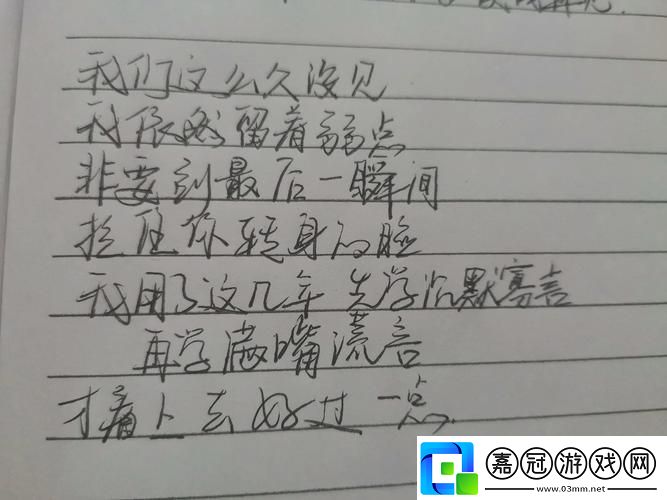 我们这么久没见
我依然留着弱点
非要到最后一瞬间
拉住你转身的脸
我用了这几年 先学沉默寡言
再学满嘴谎言
才痛 去好过一点
嘉冠游戏网
www.03mm.net